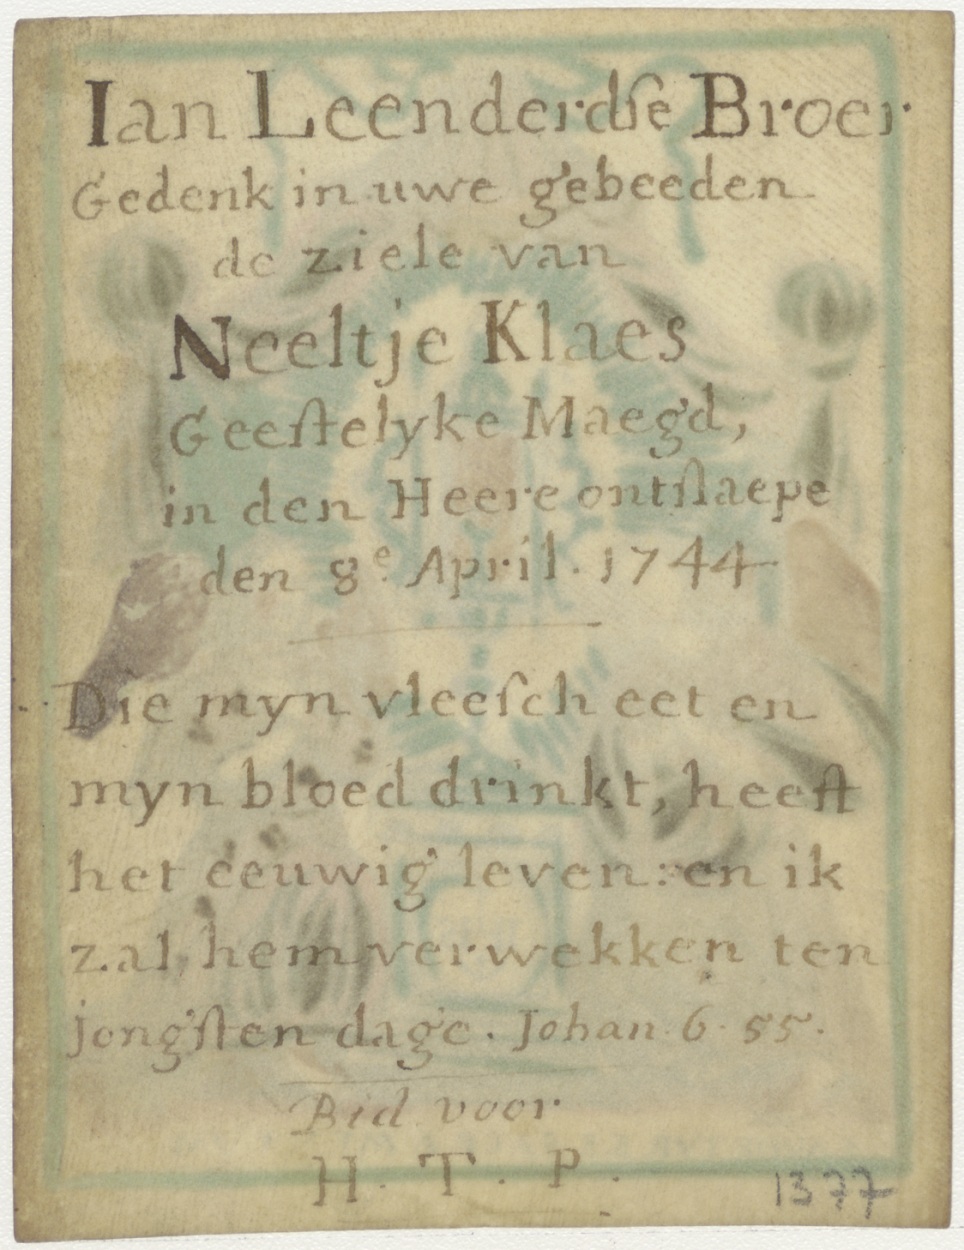 Ian Leenderdſe Broer
Gedenk in uwe gebeeden
de ziele van
Neeltje Klaes
Geeſtelyke Maegd,
in den Heere ontſlaepe
den 8e. April. 1744
Die myn vleeſch eet en
myn bloed drinkt, heeft
het eeuwig leven: en ik
zal hem verwekken ten
jongſten dage. Johan 6. 55.
Bid voor
H. T. P.
1377